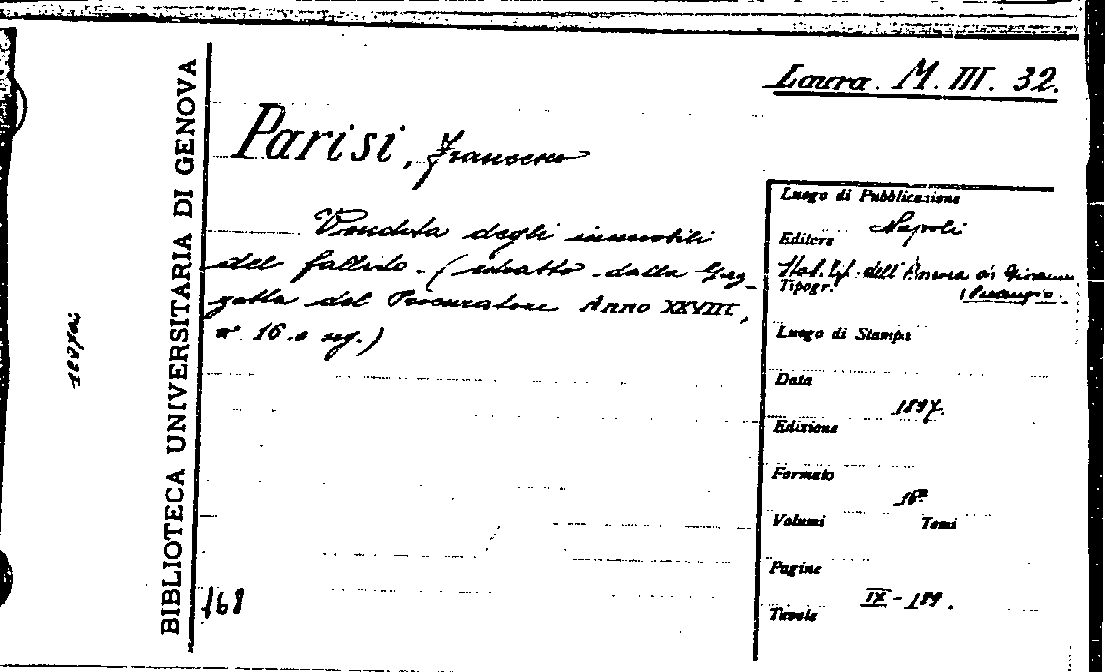 Laura. M. III. 32.
BIBLIOTECA UNIVERSITARIA DI GENOVA
Parisi, Francesco
Vendita degli immobili
del fallito - (estratto dalla Gaz-
zetta del Procuratore Anno XXVIII,
n° 16 e seg.)
168
Luogo di Pubblicazione
Napoli
Editore
Stab. tip. dell'Ancora di
Tipogr.
Luogo di Stampa
Data
1897.
Edizione
Formato
16°
Volumi Tomi
Pagine
IX - 189.
Tavole